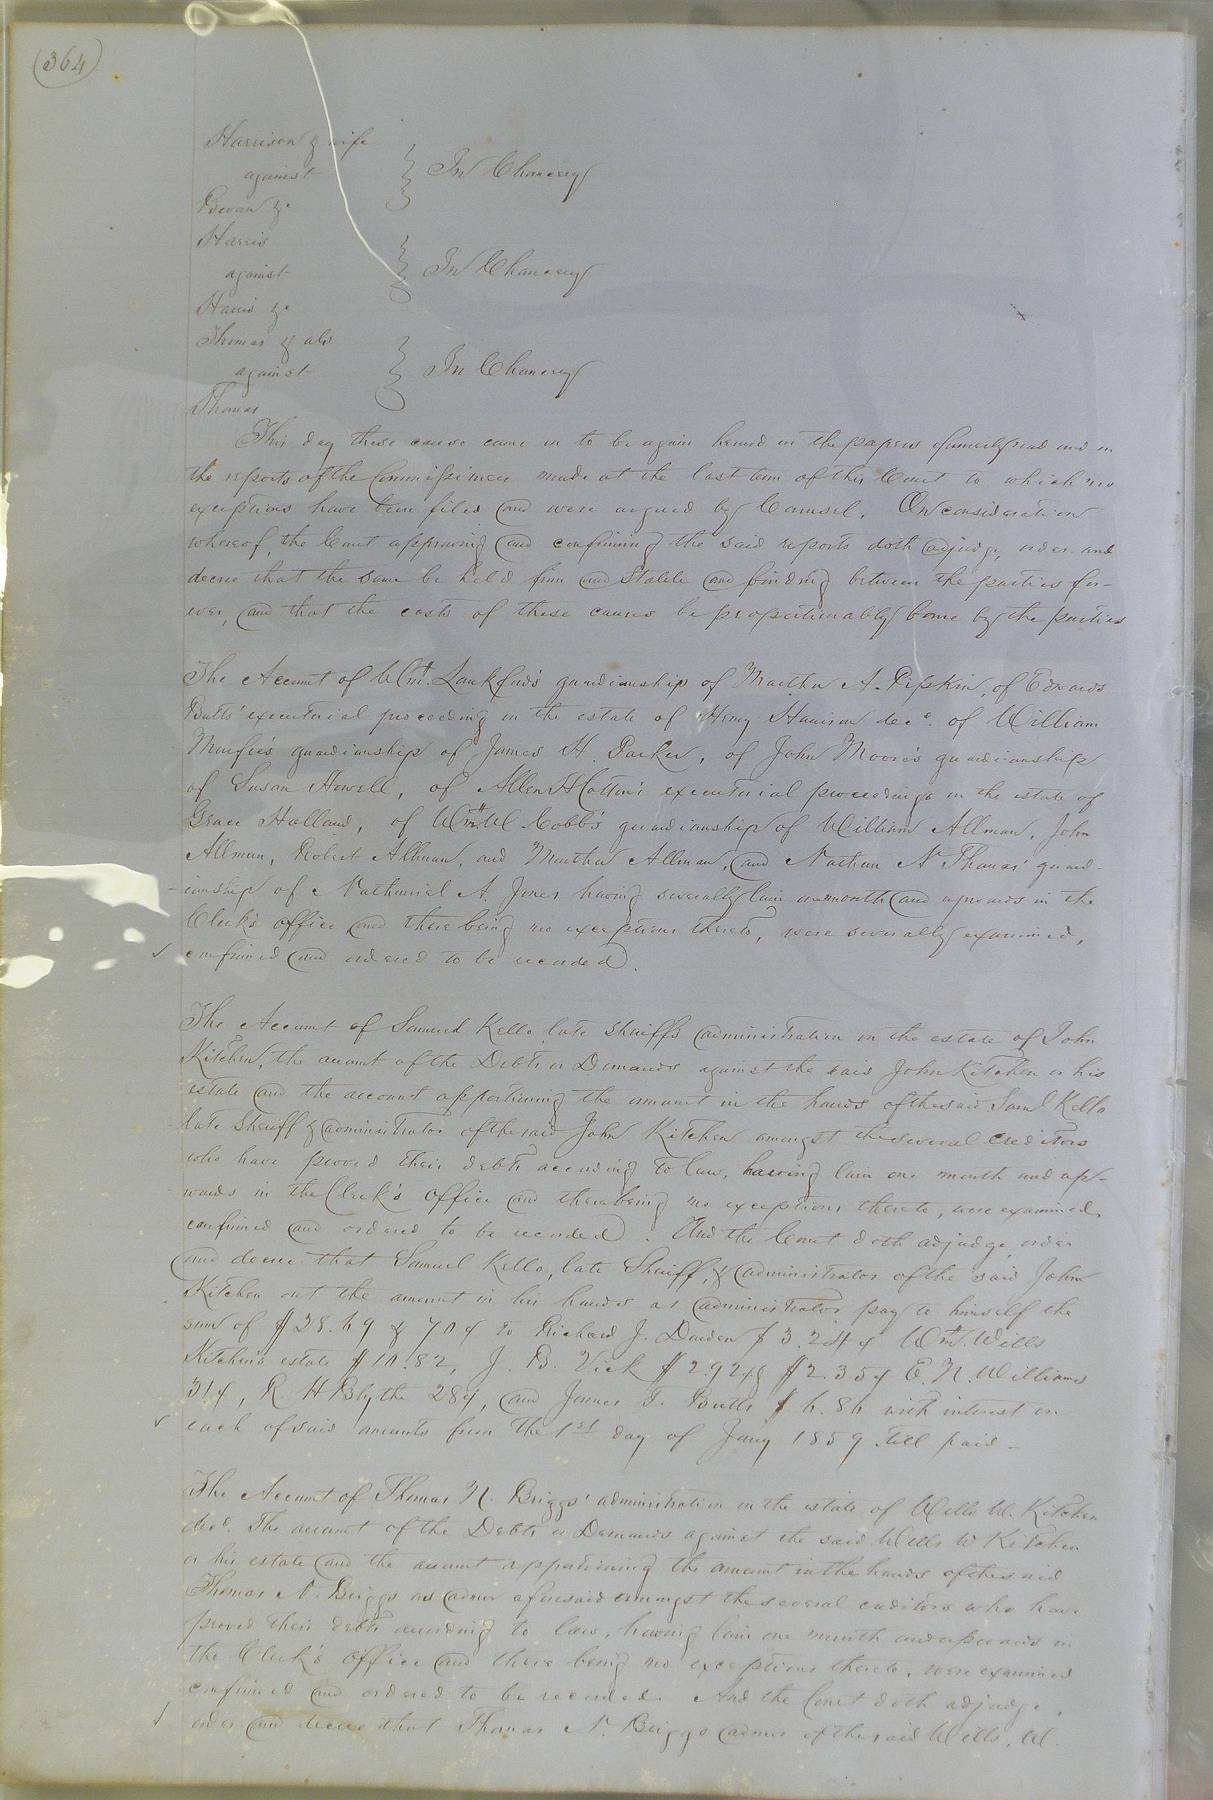 (364)
Harrison & wife
against } In Chancery
Bevan &c
Harris
against } In Chancery
Harris &c
Thomas & als
against } In Chancery
Thomas
This day these cause came on to be again heard on the papers formerly read and on
the reports of the Commissioner made at the last term of this Court to which no
exceptions have been filed and were argued by Counsel. On consideration
whereof, the Court approving and confirming the said reports doth adjudge, order and
decree that the same be held firm and stable and binding between the parties for-
ever, and that the costs of these causes be proportionably borne by the parties
The Account of Wm. Lankford's guardianship of Martha A. Pipkin, of Edwards
Butts' executorial proceeding on the estate of Henry Harrison decd. of William
guardianship of James H. Parker, of John Moore's guardianship
of Susan Howell, of Allen H Cotton's executorial proceedings on the estate of
Grace Holland, of Wm. W. Cobb's guardianship of William Allman, John
Allman, Robert Allman, and Martha Allman, and Nathan N Thomas' guard-
ianship of Nathaniel A. Jones having severally lain one month and upwards in the
Clerk's office and there being no exceptions thereto, were severally examined,
confirmed and ordered to be recorded.
The Account of Samuel Kello late sheriff's administration on the estate of John
Kitchen, the account of the Debts or Demands against the said John Kitchen or his
estate and the account apportioning the amount in the hands of the said Saml Kello
late Sheriff & administrator of the said John Kitchen amongst the several creditors
who have proved their debts according to law, having lain one month and up-
wards in the Clerk's office and there being no exceptions thereto, were examined,
confirmed and ordered to be recorded. And the Court doth adjudge, order
and decree that Samuel Kello, late Sheriff, & administrator of the said John
Kitchen out the amount in his hands as administrator pay to himself the
sum of $28.69 & 70¢ to Richard J. Darden $3.24¢ Wm. Wills
Kitchen's estate $10.82, J. B. Vick $2.92 & $2.35¢ E. N. Williams
31¢, R. H Blythe 28¢, and James T. Butts $6.86 with interest on
each of said amounts from the 1st day of Jany 1859 till paid —
The Account of Thomas N. Briggs' administration on the estate of Wills W. Kitchen
decd. The account of the Debts or Demands against the said Wills W Kitchen
or his estate and the account apportioning the amount in the hands of the said
Thomas N. Briggs as admor aforesaid amongst the several creditors who have
proved their debts according to law, having lain one month and upwards in
the Clerk's office and there being no exceptions thereto, were examined
confirmed and ordered to be recorded. And the Court doth adjudge,
order and decree that Thomas N. Briggs admor of the said Wills, W.